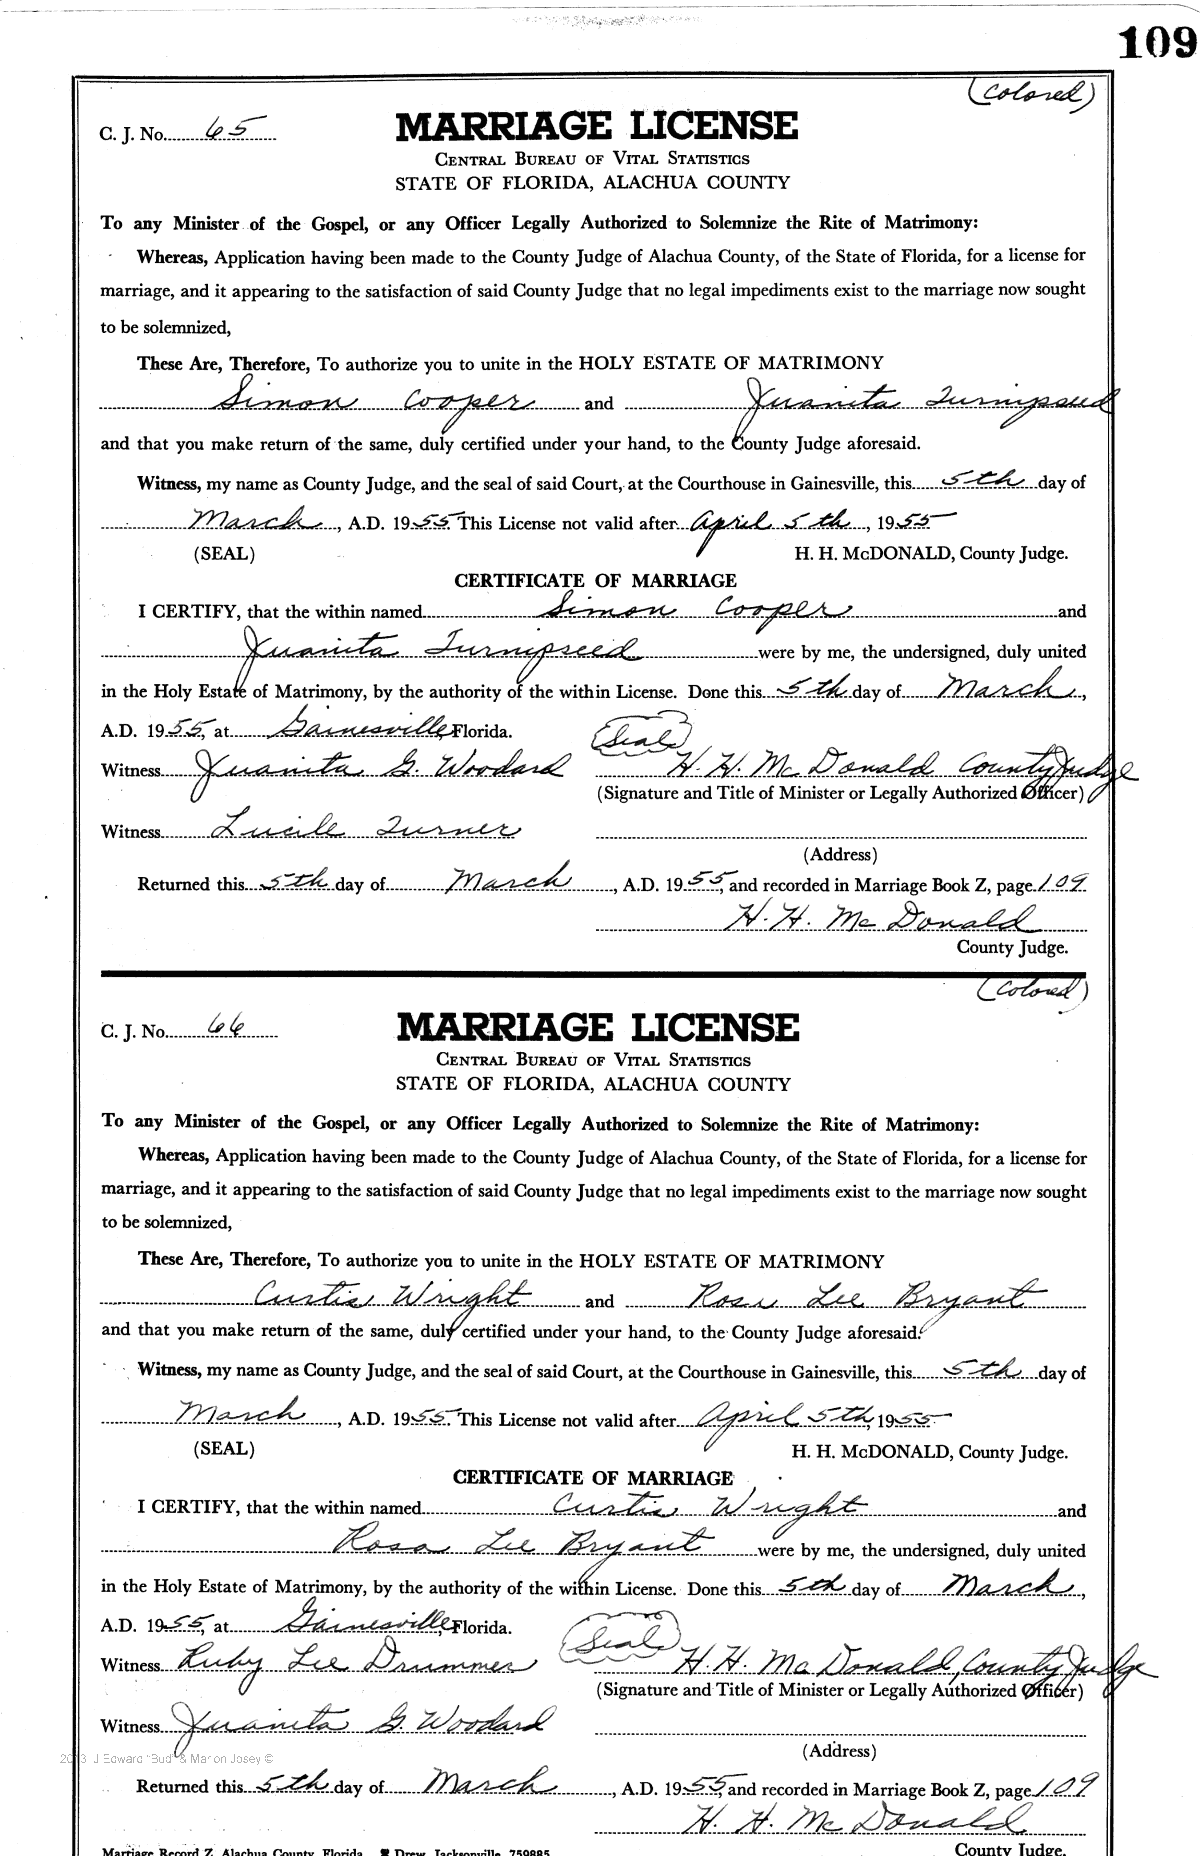 109
(Colored)
C. J. No. 65
MARRIAGE LICENSE
CENTRAL BUREAU OF VITAL STATISTICS
STATE OF FLORIDA, ALACHUA COUNTY
To any Minister of the Gospel, or any Officer Legally Authorized to Solemnize the Rite of Matrimony:
Whereas, Application having been made to the County Judge of Alachua County, of the State of Florida, for a license for
marriage, and it appearing to the satisfaction of said County Judge that no legal impediments exist to the marriage now sought
to be solemnized,
These Are, Therefore, To authorize you to unite in the HOLY ESTATE OF MATRIMONY
Simon Cooper and Juanita Turnipseed
and that you make return of the same, duly certified under your hand, to the County Judge aforesaid.
Witness, my name as County Judge, and the seal of said Court, at the Courthouse in Gainesville, this 5th day of
March, A.D. 1955. This License not valid after April 5th, 1955
(SEAL) H. H. McDONALD, County Judge.
CERTIFICATE OF MARRIAGE
I CERTIFY, that the within named Simon Cooper and
Juanita Turnipseed were by me, the undersigned, duly united
in the Holy Estate of Matrimony, by the authority of the within License. Done this 5th day of March,
A.D. 1955, at Gainesville, Florida. (Seal)
Witness Juanita G. Woodard H. H. McDonald County Judge
(Signature and Title of Minister or Legally Authorized Officer)
Witness Lucile Turner
(Address)
Returned this 5th day of March, A.D. 1955, and recorded in Marriage Book Z, page 109
H. H. McDonald
County Judge.
(Colored)
C. J. No. 66
MARRIAGE LICENSE
CENTRAL BUREAU OF VITAL STATISTICS
STATE OF FLORIDA, ALACHUA COUNTY
To any Minister of the Gospel, or any Officer Legally Authorized to Solemnize the Rite of Matrimony:
Whereas, Application having been made to the County Judge of Alachua County, of the State of Florida, for a license for
marriage, and it appearing to the satisfaction of said County Judge that no legal impediments exist to the marriage now sought
to be solemnized,
These Are, Therefore, To authorize you to unite in the HOLY ESTATE OF MATRIMONY
Curtis Wright and Rosa Lee Bryant
and that you make return of the same, duly certified under your hand, to the County Judge aforesaid.
Witness, my name as County Judge, and the seal of said Court, at the Courthouse in Gainesville, this 5th day of
March, A.D. 1955. This License not valid after April 5th, 1955
(SEAL) H. H. McDONALD, County Judge.
CERTIFICATE OF MARRIAGE
I CERTIFY, that the within named Curtis Wright and
Rosa Lee Bryant were by me, the undersigned, duly united
in the Holy Estate of Matrimony, by the authority of the within License. Done this 5th day of March,
A.D. 1955, at Gainesville, Florida. (Seal)
Witness Ruby Lee Drummer H. H. McDonald, County Judge
(Signature and Title of Minister or Legally Authorized Officer)
Witness Juanita G. Woodard
2013 J Edward "Bud" & Marion Josey ©
(Address)
Returned this 5th day of March, A.D. 1955, and recorded in Marriage Book Z, page 109
H. H. McDonald
County Judge.
Marriage Record Z, Alachua County, Florida. Drew, Jacksonville, 759885